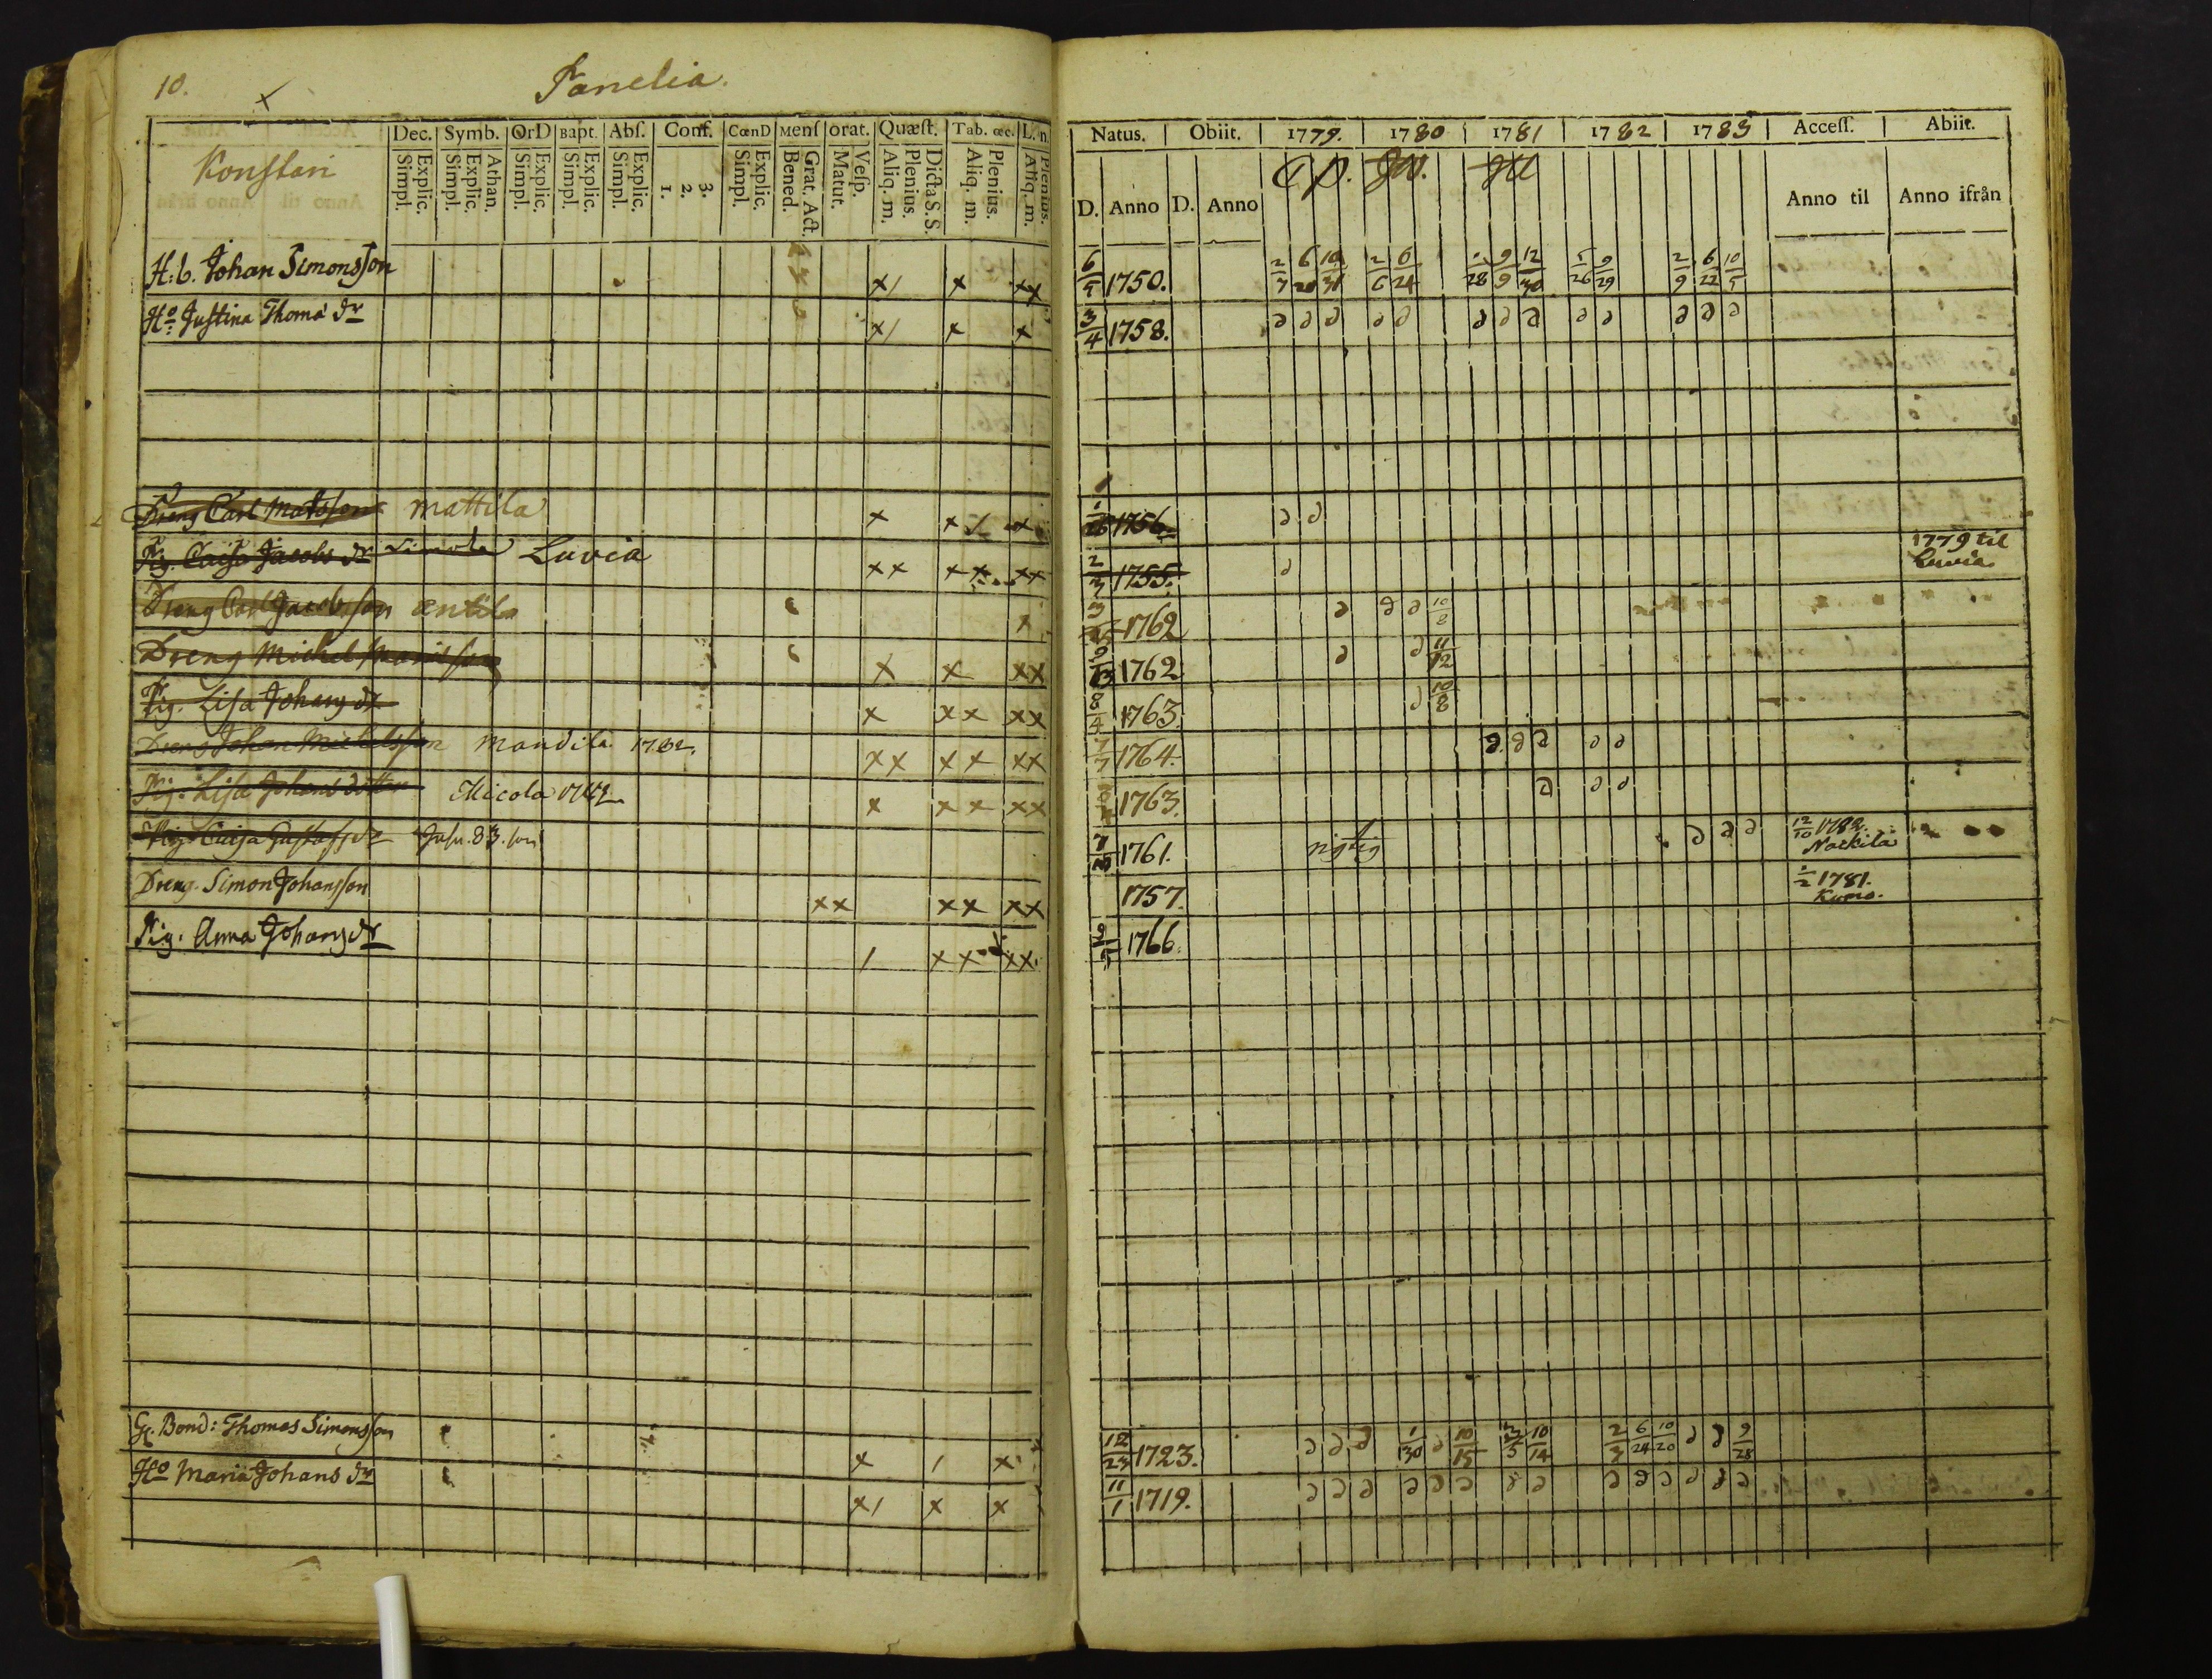 10.
Panelia.
Dec. Symb. OrD Bapt. Abſ. Conf. CœnD Menſ orat. Quæſt. Tab. œc. L. n
Konstari
Explic. Simpl. Athan. Explic. Simpl. Explic. Simpl. Explic. Simpl. Explic. Simpl. 3. 2. 1. Explic. Simpl. Grat. Act. Bened. Veſp. Matut. Dicta S.S. Plenius. Aliq. m. Plenius. Aliq. m. Plenius. Aliq. m.
H:b. Johan Simonsson
Ho: Justina Thomæ dr
Dreng Carl Matsson Mattila
Pig. Caisa Jacobs dr Luvia
Dreng Carl Jacobsson Antila
Dreng Michel
Pig. Lisa Johans dr
Dreng Johan Michelsson Mandila 1782.
Pig. Lisa Johans dotter Micola
Pig. Caisa Gustafs dr
Dreng. Simon Johansson
Pig. Anna Johans dr
Bond: Thomas Simonsson
Ho Maria Johans dr
Natus. Obiit. 1779. 1780 1781 1782 1783 Acceſſ. Abiit.
D. Anno D. Anno Anno til Anno ifrån
6/5 1750. 2/7 6/20 10/31 2/6 6/24 9/9 12/30 5/26 9/29 2/9 6/22 10/5
3/4 1758.
1756.
2/3 1755. 1779 til Luvia
1762 10/8
1762 11/12
8/4 1763. 10/8
7/7 1764.
1763.
1761. rigtig 12/10 1782. Nackila
1757. 1/2 1781. Kumo.
9/5 1766.
12/23 1723. 1/30 10/15 10/14 2/3 6/24 10/20 9/28
11/1 1719.